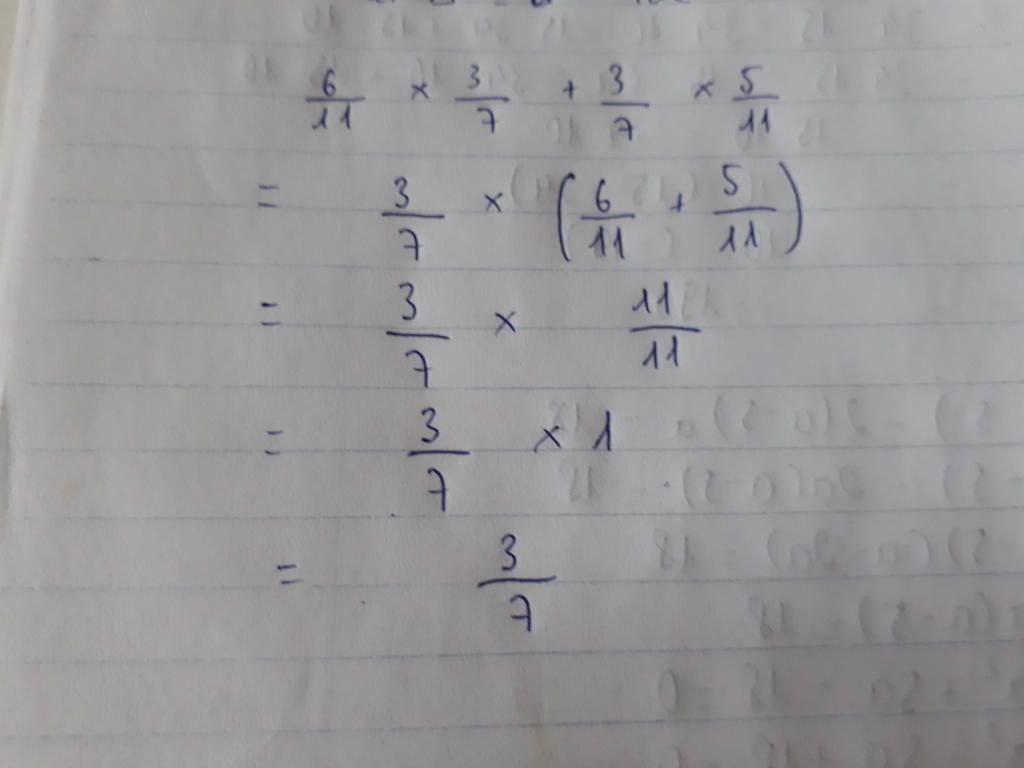 6/11 × 3/7 + 3/7 × 5/11
= 3/7 × (6/11 + 5/11)
= 3/7 × 11/11
= 3/7 × 1
= 3/7